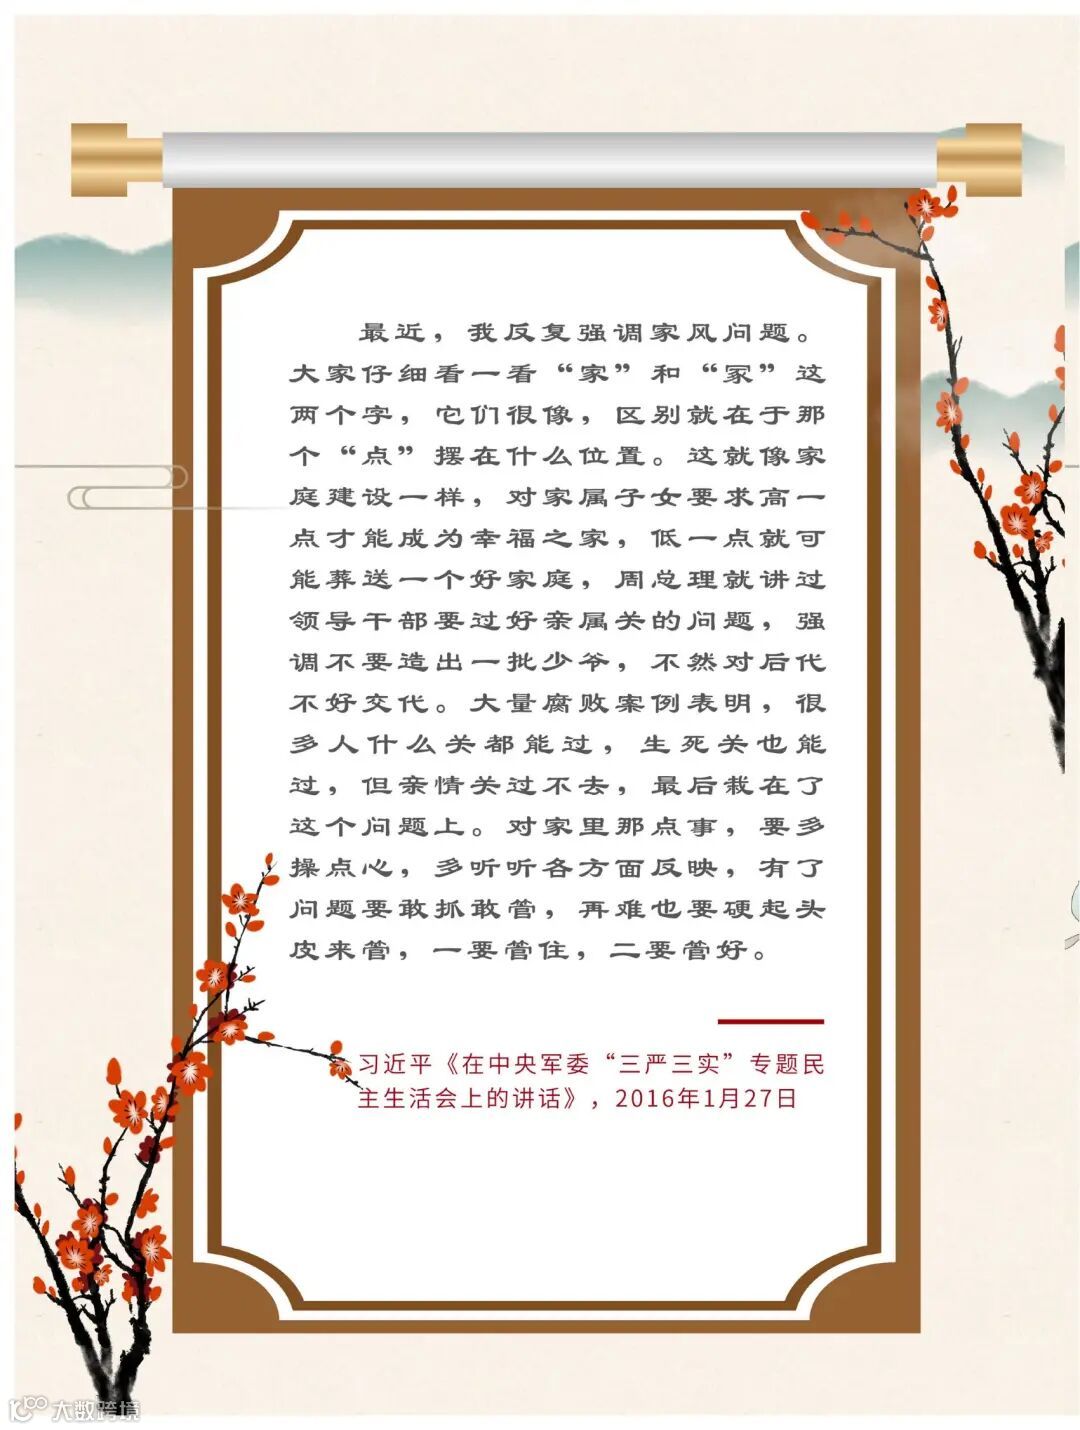 最近，我反复强调家风问题。
大家仔细看一看“家”和“冢”这
两个字，它们很像，区别就在于那
个“点”摆在什么位置。这就像家
庭建设一样，对家属子女要求高一
点才能成为幸福之家，低一点就可
能葬送一个好家庭，周总理就讲过
领导干部要过好亲属关的问题，强
调不要造出一批少爷，不然对后代
不好交代。大量腐败案例表明，很
多人什么关都能过，生死关也能
过，但亲情关过不去，最后栽在了
这个问题上。对家里那点事，要多
操点心，多听听各方面反映，有了
问题要敢抓敢管，再难也要硬起头
皮来管，一要管住，二要管好。
习近平《在中央军委“三严三实”专题民
主生活会上的讲话》，2016年1月27日
大数跨境